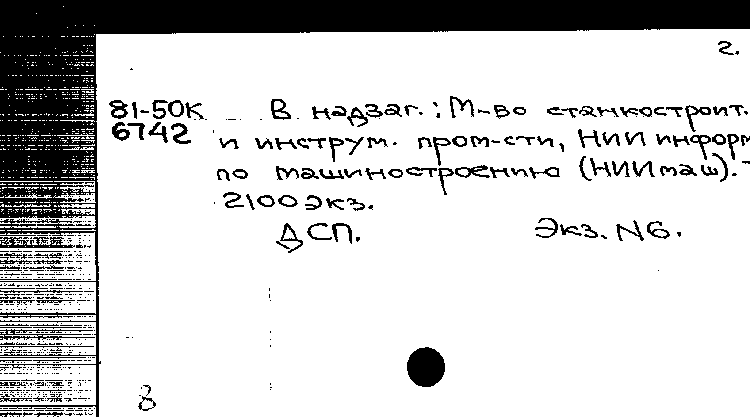 2.
81-50К В надзаг.: М-во станкостроит.
6742 и инструм. пром-сти, НИИ информ
по машиностроению (НИИмаш). -
2100 экз.
ДСП. Экз. N6.
8